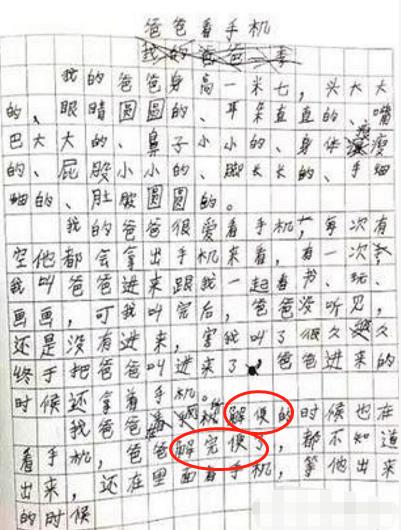 爸爸看手机
我的爸爸
我的爸爸身高一米七，头大大
的、眼睛圆圆的、耳朵直直的、嘴
巴大大的、鼻子小小的、身体瘦瘦
的、屁股小小的、脚长长的、手细
细的、肚圆圆的。
我的爸爸很爱看手机，每次有
空他都会拿出手机来看，有一次，
我叫爸爸进来跟我一起看书、玩、
画画，可我叫完后，爸爸没听见，
还是没有进来，害我叫了很久
终于把爸爸叫进来了。爸爸进来的
时候还拿着手机。
我爸爸解便的时候也在
看手机，爸爸解完便了，都不知道
出来，还在里面看手机，等他出来
的时候